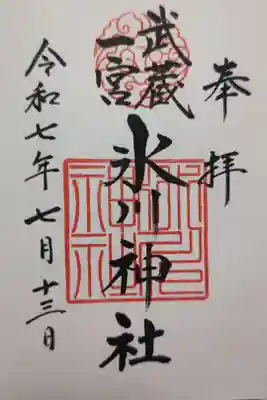 奉拝
武蔵
一宮
氷川神社
令和七年七月十三日